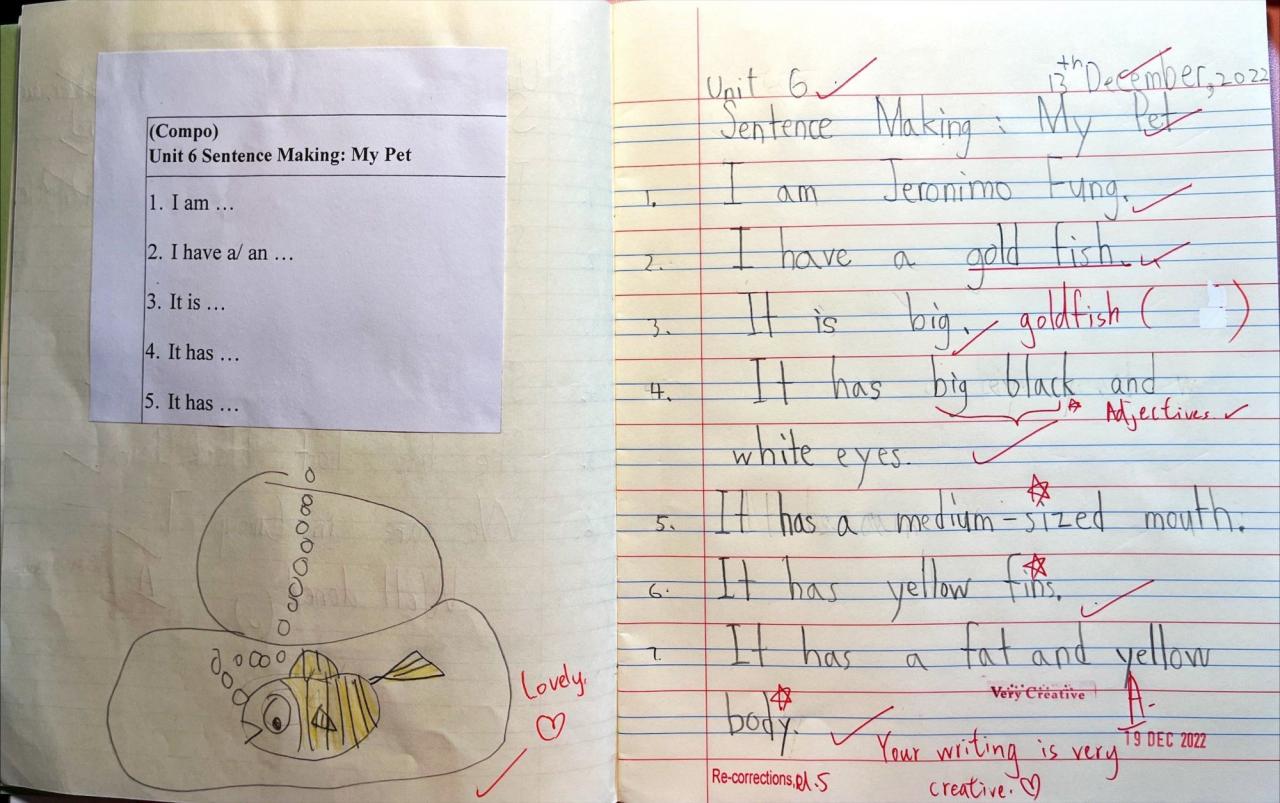 (Compo)
Unit 6 Sentence Making: My Pet
1. I am …
2. I have a/ an …
3. It is …
4. It has …
5. It has …
Lovely.
Unit 6
13th December, 2022
Sentence Making : My Pet
1. I am Jeronimo Fung.
2. I have a gold fish.
3. It is big. goldfish ( )
4. It has big black and
Adjectives
white eyes.
5. It has a medium-sized mouth.
6. It has yellow fins.
7. It has a fat and yellow
Very Creative
A-
body.
19 DEC 2022
Your writing is very
creative.
Re-corrections,